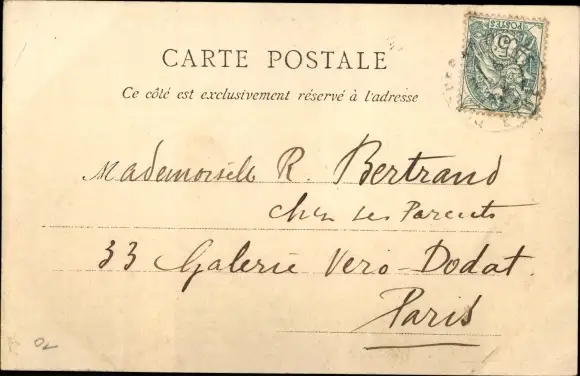 CARTE POSTALE
Ce côté est exclusivement réservé à l'adresse
POSTES
Mademoiselle R. Bertrand
chez ses Parents
33 Galerie Vero-Dodat.
Paris